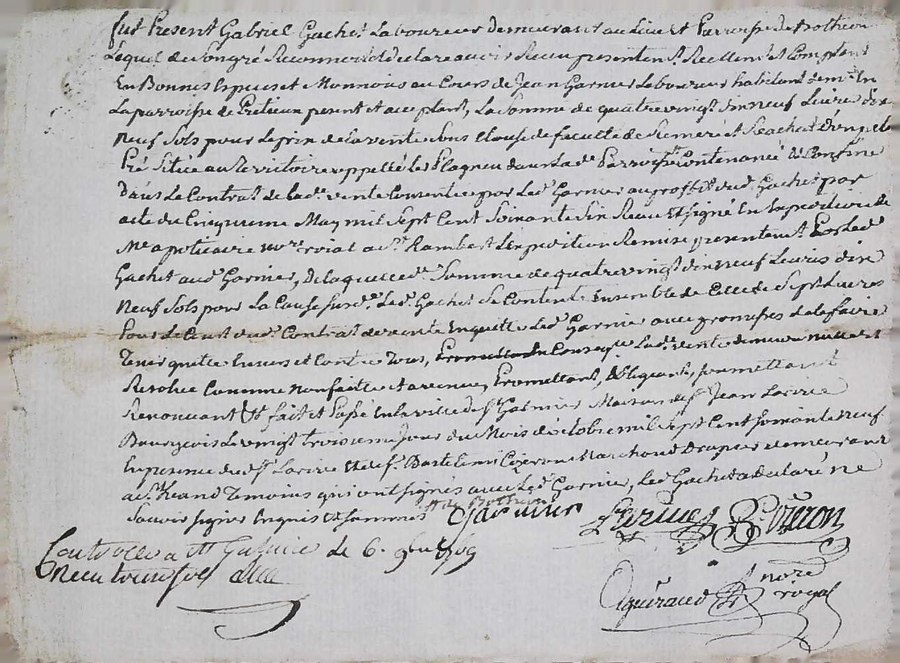 fut Present Gabriel Gachet Laboureur demeurant au Lieu et Parroisse de Bothéon
Lequel de son gré Reconnoit et declare avoir Receu presentemt. Reellemt. et Comptant
En Bonnes Espuces et Monnoies au Cours de Jean Garnier Laboureur habitant demt. En
La parroisse de Pretieux pnent et acceptant, La Somme de quatre vingt dix neuf Livres dix
neuf Sols pour Le prix de la vente sous Clause de faculté de Remeré et Rachat d'un petit
Pré Situé au Territoire appellé Les Plagnes dans Lade. Parroisse Contenance et Confine
Dans Le Contrat de lade. vente Consentie par Led. Garnier au proffit dud. Gachet par
acte du Cinquieme May mil Sept Cent Soixante Six Receu et Signé En Expedition de
Me apoticaire nore. roial a St. Rambert L'Expedition Remise presentemt. Par Led.
Gachet aud. Garnier, de laquelle de. Somme de quatre vingt dix neuf Livres dix
neuf Sols pour La Cause susde. Led. Gachet Se Contente Ensemble de Celle de Sept Livres
Pour Le dud. Contrat de vente En quitte Led. Garnier avec promesses de la faire
Tenir quitte Envers et Contre Tous, Lade. vente demeure nulle et
Resolue Comme non faitte et avenue, Promettant, obligeant, soumettant
Renoncant &t fait et Passé En la ville de St. Garmier Maison de Sr. Jean Lacive
Bourgeois Le vingt troisieme Jour du Mois d'octobre mil Sept Cent Soixante neuf
En presence dud. Sr. Lacive Et de Sr. Bartelemi Marchand Drapier demeurant
a St. Temoins qui ont signés avec Led. Garnier, Led. Gachet a declaré ne
Scavoir signer Enquis &t Sommé de Botheon J Garnier
Controllé a St. Galmier Le 6. 9bre 1769
Receu treize Sols
nore
royal